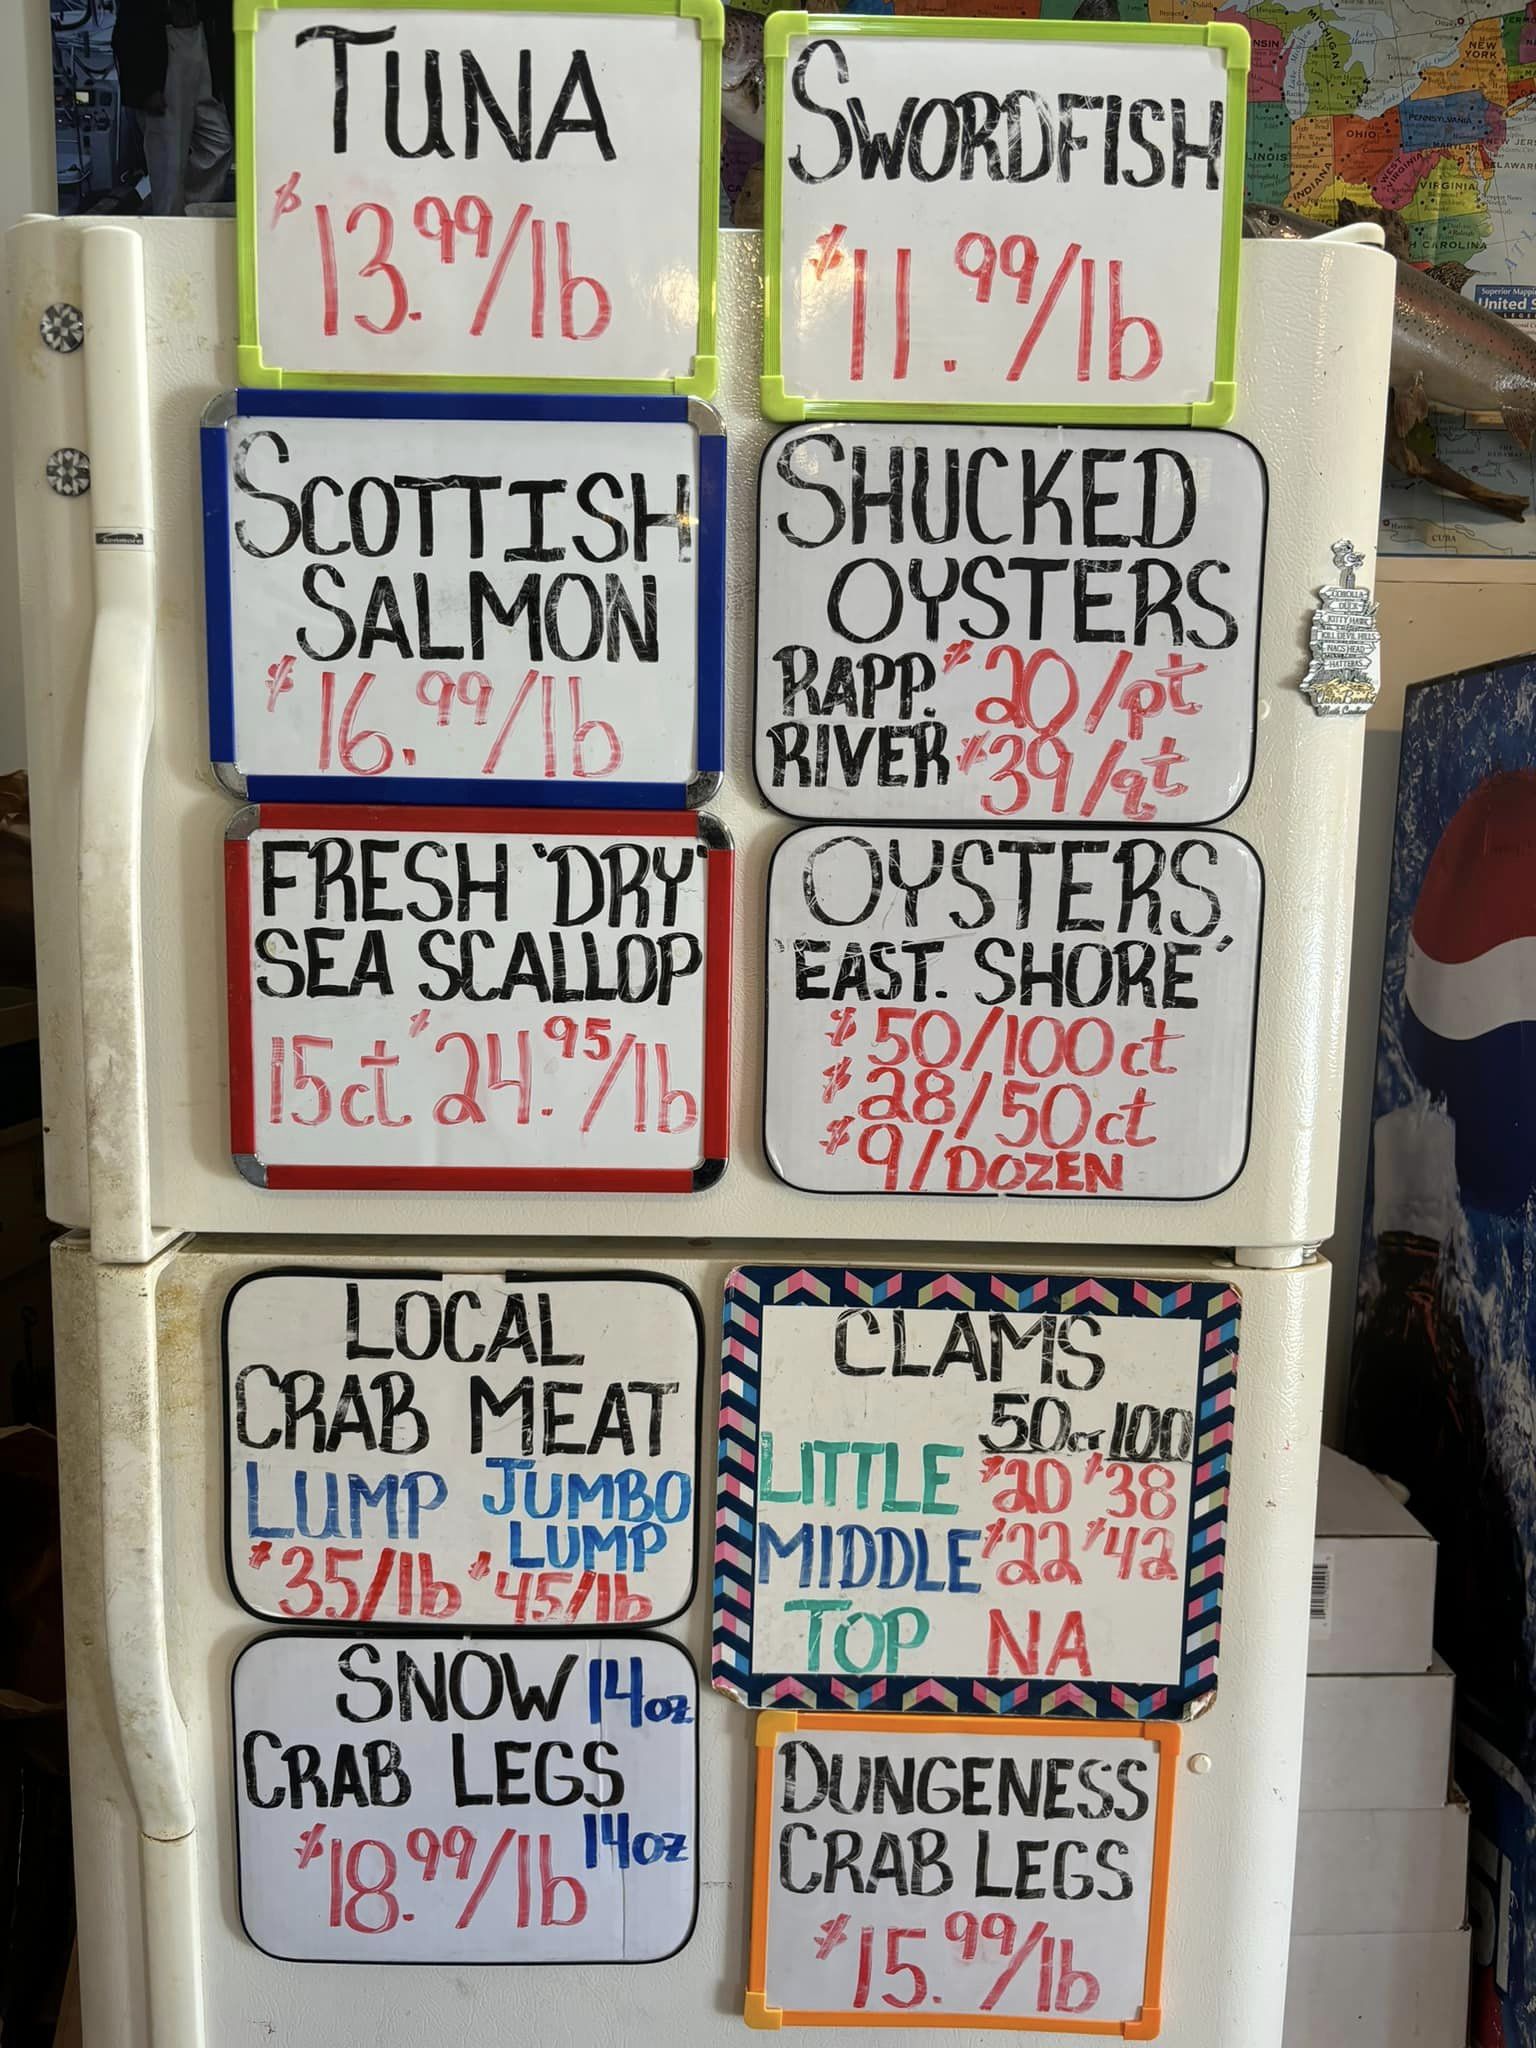 TUNA
$13.99/lb
SWORDFISH
$11.99/lb
SCOTTISH
SALMON
$16.99/lb
SHUCKED
OYSTERS
RAPP. $20/pt
RIVER $39/qt
FRESH 'DRY'
SEA SCALLOP
15ct $24.95/lb
OYSTERS
'EAST. SHORE'
$50/100ct
$28/50ct
$9/DOZEN
LOCAL
CRAB MEAT
LUMP JUMBO
LUMP
$35/lb $45/lb
CLAMS
50ct 100
LITTLE $20 $38
MIDDLE $22 $42
TOP NA
SNOW 14oz
CRAB LEGS
$18.99/lb 14oz
DUNGENESS
CRAB LEGS
$15.99/lb
Kenmore
COROLLA
DUCK
KITTY HAWK
KILL DEVIL HILLS
NAGS HEAD
HATTERAS
OuterBanks
North Carolina
MICHIGAN
NEW
YORK
PENNSYLVANIA
OHIO
INDIANA
WEST
VIRGINIA
MARYLAND
VIRGINIA
CUBA